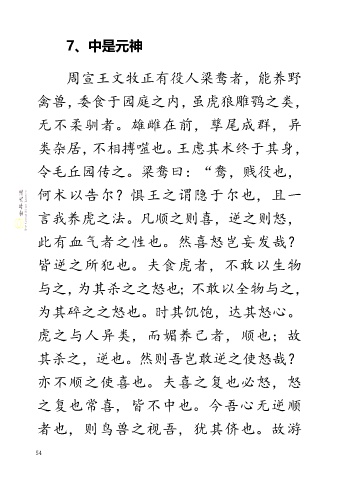 7、中是元神
周宣王文牧正有役人梁鸯者，能养野
禽兽，委食于园庭之内，虽虎狼雕鹗之类，
无不柔驯者。雄雌在前，孳尾成群，异
类杂居，不相搏噬也。王虑其术终于其身，
令毛丘园传之。梁鸯曰：“鸯，贱役也，
何术以告尔？惧王之谓隐于尔也，且一
言我养虎之法。凡顺之则喜，逆之则怒，
此有血气者之性也。然喜怒岂妄发哉？
皆逆之所犯也。夫食虎者，不敢以生物
与之，为其杀之之怒也；不敢以全物与之，
为其碎之之怒也。时其饥饱，达其怒心。
虎之与人异类，而媚养己者，顺也；故
其杀之，逆也。然则吾岂敢逆之使怒哉？
亦不顺之使喜也。夫喜之复也必怒，怒
之复也常喜，皆不中也。今吾心无逆顺
者也，则鸟兽之视吾，犹其侪也。故游
54